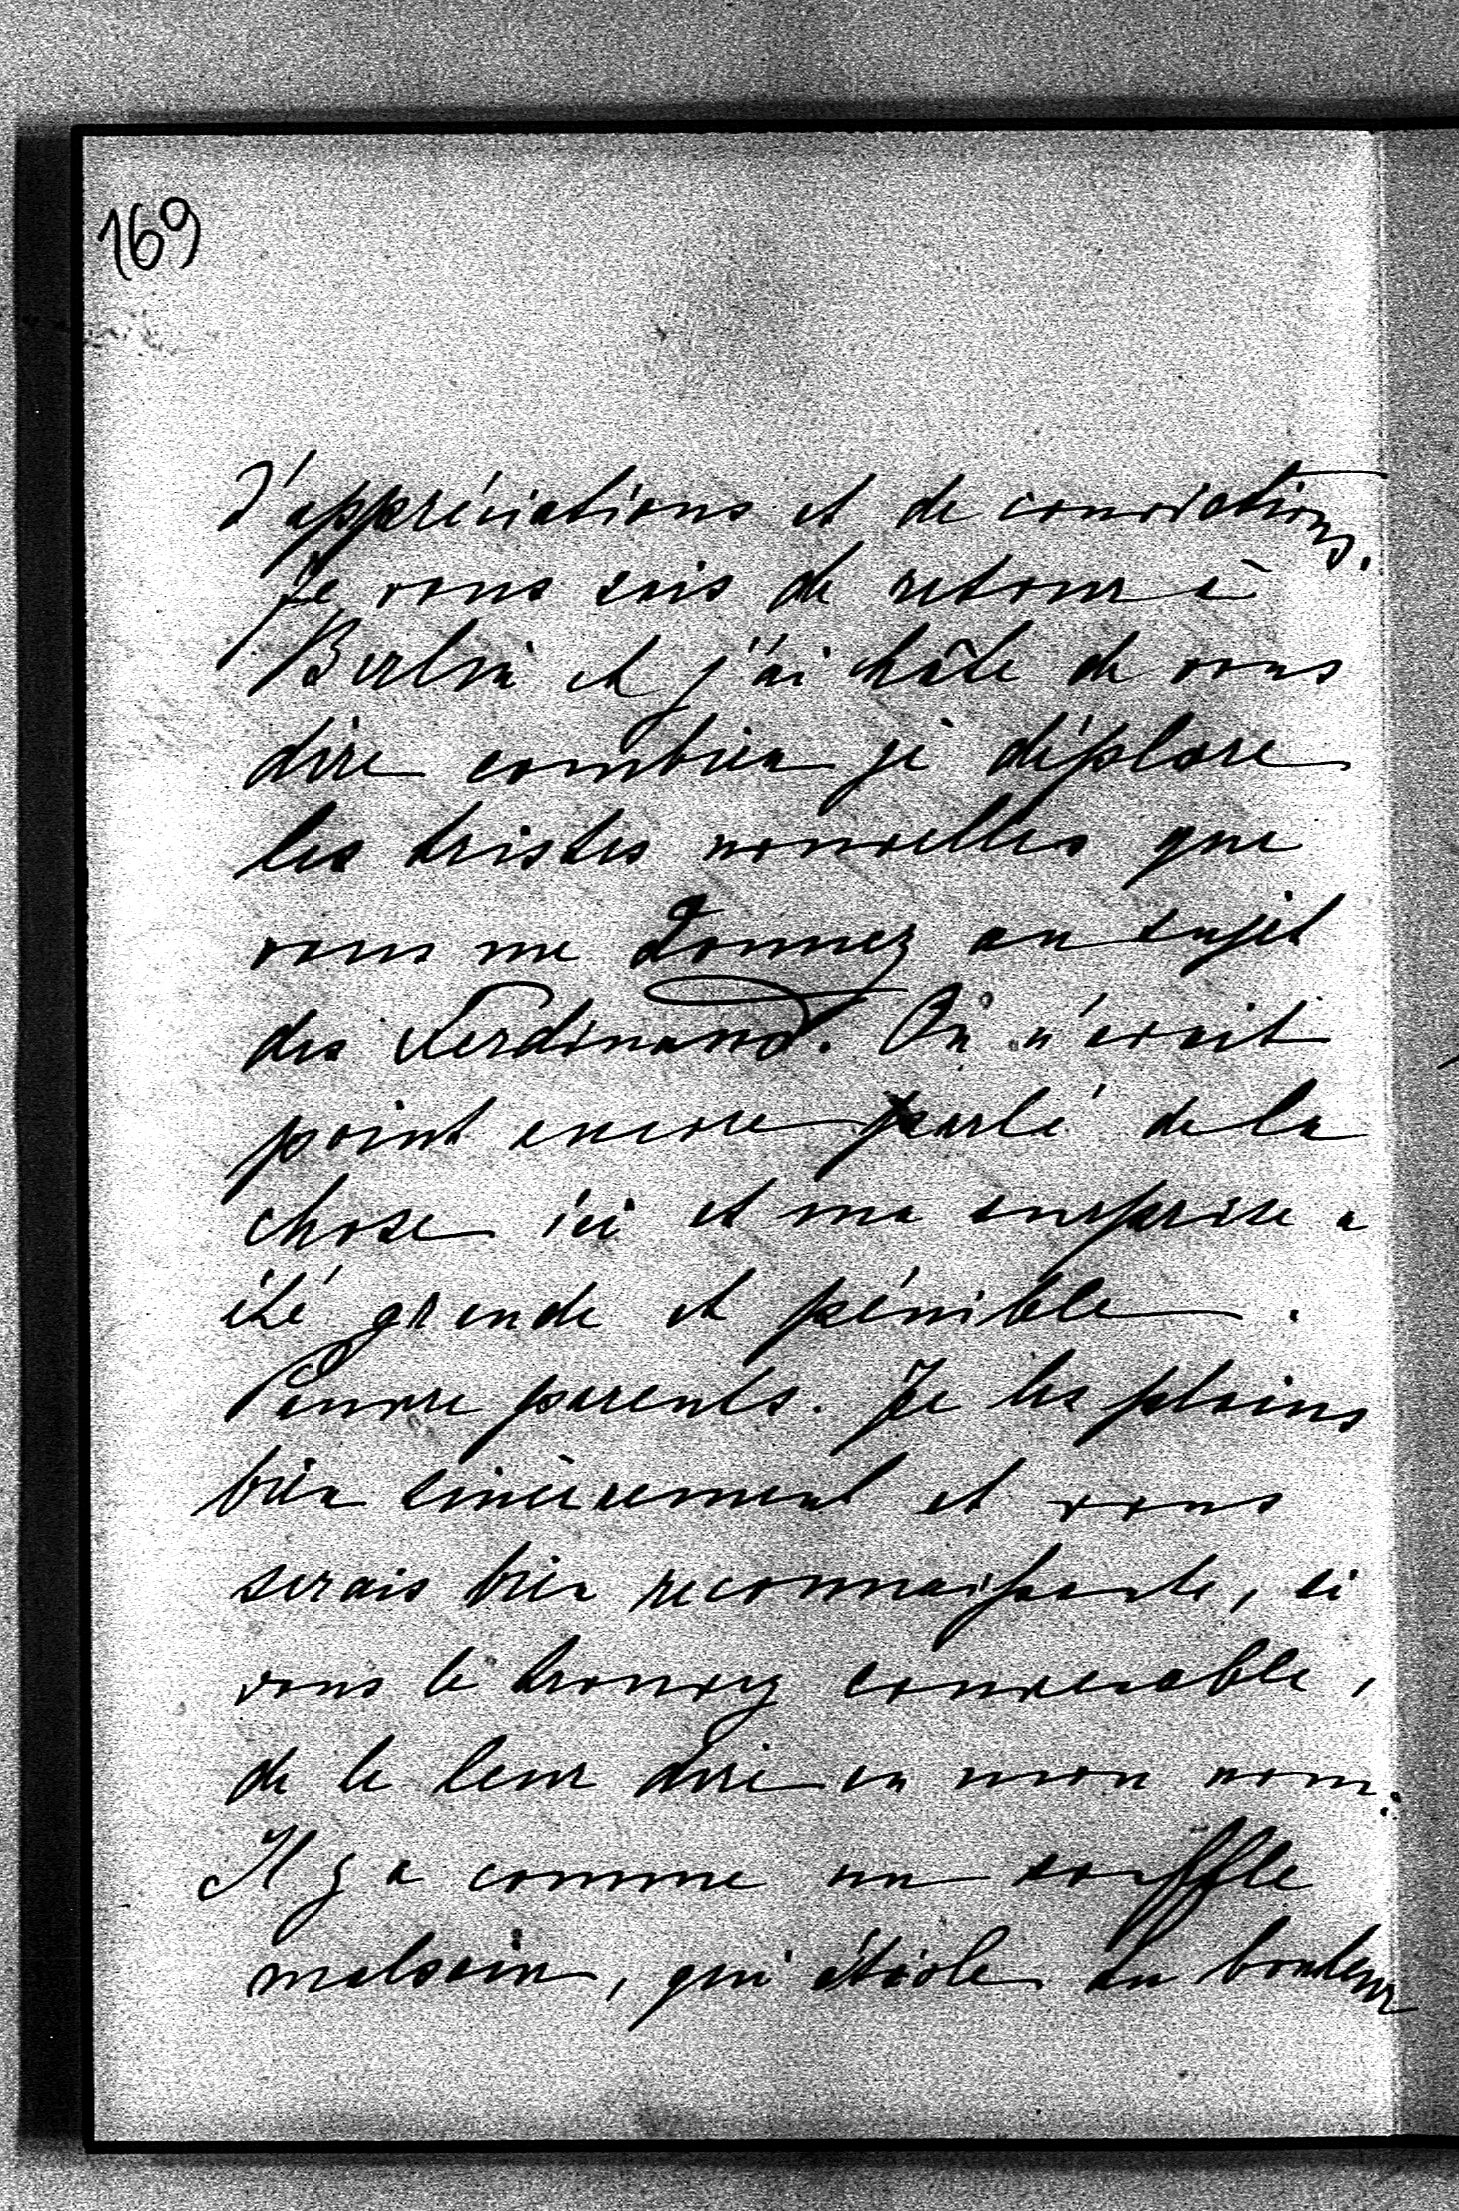 169
d'appréciations et de convictions.
Je vous suis de retour à
Berlin et j'ai hâte de vous
dire combien je déplore
les tristes nouvelles que
vous me donnez au sujet
des Ferdinand. On n'avait
point encore parlé de la
chose ici et ma surprise a
été grande et pénible.
Pauvre parents. Je les plains
bien sincèrement et vous
serais bien reconnaissante, si
vous le trouvez convenable,
de le leur dire en mon nom.
Il y a comme un souffle
malsain, qui étiole du bonheur